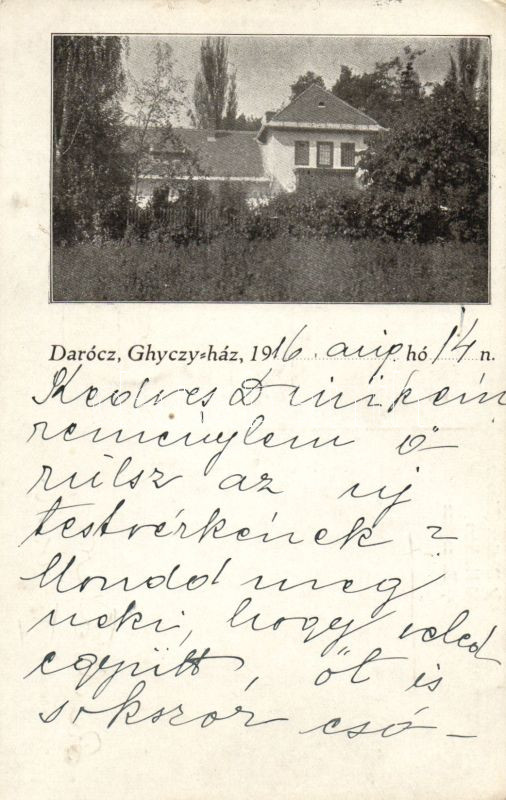 Darócz, Ghyczy-ház, 1916. aug. hó 14 n.
Kedves Dinikém
reménylem ö-
rülsz az új
testvérkének ?
Mondd meg
neki, hogy veled
együtt, őt is
sokszor csó-